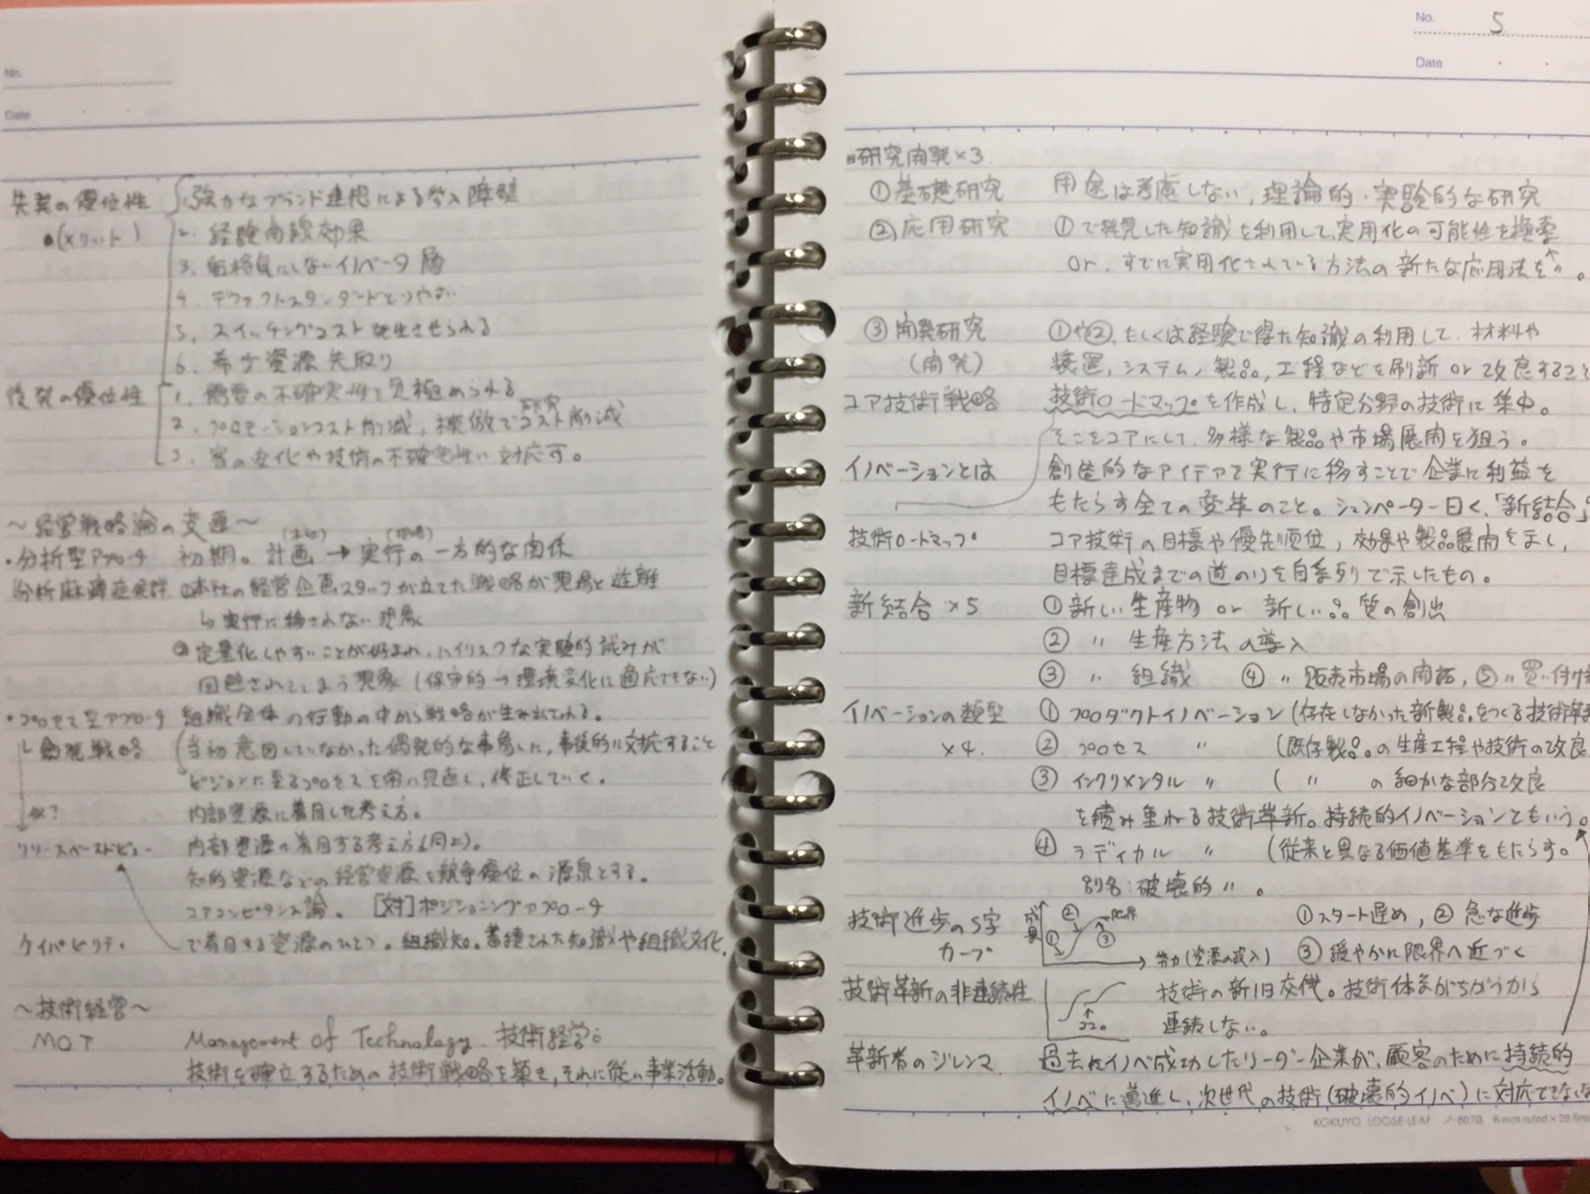 No.
Date
先発の優位性 1. 強力なブランド連想による参入障壁
(メリット) 2. 経験曲線効果
3. 価格気にしないイノベータ層
4. デファクトスタンダードとりやすい
5. スイッチングコスト発生させられる
6. 希少資源先取り
後発の優位性 1. 需要の不確実性を見極められる
2. プロモーションコスト削減, 模倣で研究コスト削減
3. 客の変化や技術の不確実性に対応可。
〜経営戦略論の変遷〜
・分析型アプローチ 初期。計画 → 実行の一方的な関係
分析麻痺症候群 ①本社の経営企画スタッフが立てた戦略が現場と遊離
↳実行に移されない現象
②定量化しやすいことが好まれ、ハイリスクな実験的試みが
回避されてしまう現象 (保守的→環境変化に適応できない)
・プロセス型アプローチ 組織全体の行動の中から戦略が生み出される。
創発戦略 当初意図していなかった偶発的な事象に、事後的に対抗すること
ビジョンに至るプロセスを常に見直し、修正していく。
内部資源に着目した考え方。
リソースベースドビュー 内部資源に着目する考え方(同上)。
知的資源などの経営資源を競争優位の源泉とする。
コアコンピタンス論。 [対]ポジショニングアプローチ
ケイパビリティ で着目する資源のひとつ。組織知。蓄積された知識や組織文化。
〜技術経営〜
MOT Management of Technology. 技術経営。
技術を確立するための技術戦略を築き、それに従い事業活動。
No. 5
Date
■研究開発×3
①基礎研究 用途は考慮しない, 理論的・実験的な研究
②応用研究 ①で発見した知識を利用して、実用化の可能性を模索
or、すでに実用化されている方法の新たな応用法を〃。
③開発研究 ①や②、もしくは経験で得た知識の利用して、材料や
(開発) 装置, システム, 製品, 工程などを刷新 or 改良すること
コア技術戦略 技術ロードマップを作成し、特定分野の技術に集中。
そこをコアにして、多様な製品や市場展開を狙う。
イノベーションとは 創造的なアイデアで実行に移すことで企業に利益を
もたらす全ての変革のこと。シュンペーター曰く、「新結合」
技術ロードマップ コア技術の目標や優先順位, 効果や製品展開を示し,
目標達成までの道のりを時系列で示したもの。
新結合×5 ①新しい生産物 or 新しい品質の創出
② 〃 生産方法の導入
③ 〃 組織 ④ 〃 販売市場の開拓, ⑤ 〃 買い付け
イノベーションの類型 ①プロダクトイノベーション (存在しなかった新製品をつくる技術革
×4. ②プロセス 〃 (既存製品の生産工程や技術の改良
③インクリメンタル 〃 ( 〃 の細かな部分改良
を積み重ねる技術革新。持続的イノベーションともいう。
④ラディカル 〃 (従来と異なる価値基準をもたらす。
別名:破壊的 〃 。
技術進歩のS字 成果 ① ② ③ 限界 ①スタート遅め, ②急な進歩
カーブ 努力(資源の投入) ③緩やかに限界へ近づく
技術革新の非連続性 ココ。 技術の新旧交代。技術体系がちがうから
連続しない。
革新者のジレンマ 過去にイノベ成功したリーダー企業が、顧客のために持続的
イノベに邁進し、次世代の技術(破壊的イノベ)に対応できない
KOKUYO LOOSE-LEAF ノ-807B 6 mm ruled × 28 lines